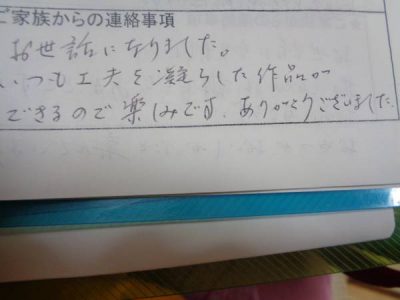 ご家族からの連絡事項
お世話になりました。
いつも工夫を凝らした作品が
できるので楽しみです。ありがとうございました。